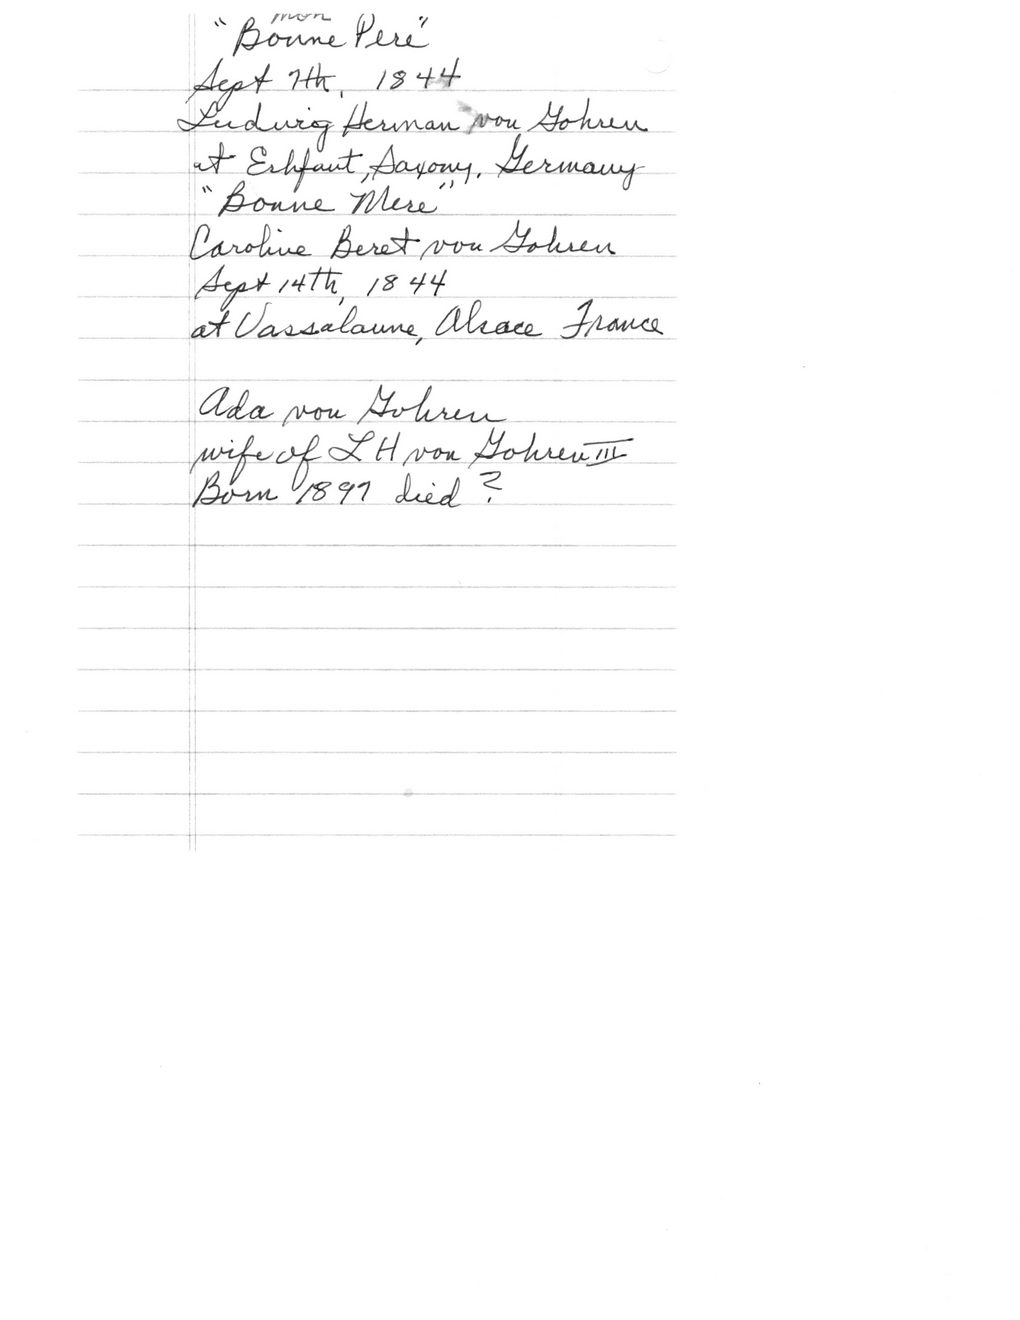 mon
"Bonne Pere"
Sept 7th, 1844
Ludwig Herman von Gohren
at Erhfaut, Saxony. Germany
"Bonne Mere"
Caroline Beret von Gohren
Sept 14th, 1844
at Vassalaune, Alsace France
Ada von Gohren
wife of L H von Gohren III
Born 1897 died ?